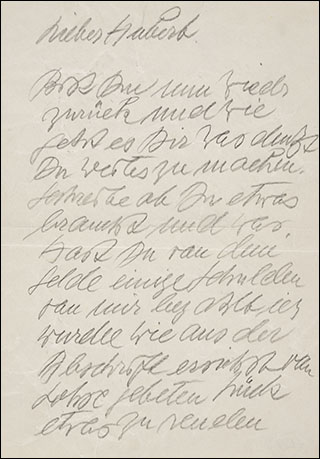 Lieber Hubert
Bist Du nun wieder
zurück und wie
geht es Dir was denkst
Du weiter zu machen.
Schreibe ob Du etwas
brauchst und was.
Hast Du von dem
Gelde einige Schulden
von mir bezahlt, ich
wurde wie aus der
Abschrift ersichtst von
gebeten Stück
etwas zu senden